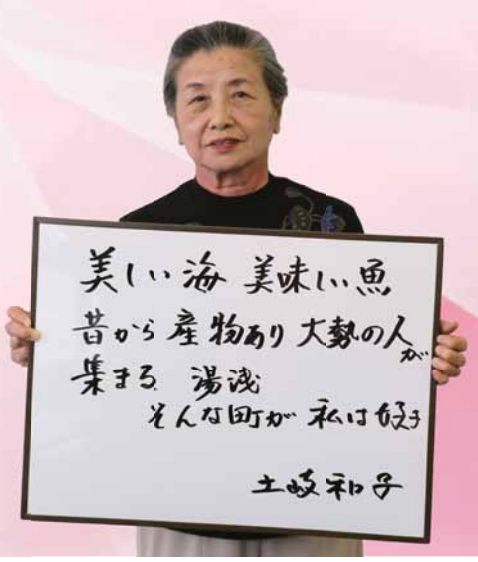 美しい海 美味しい魚
昔から産物あり大勢の人が
集まる 湯浅
そんな町が 私は好き
土岐和子